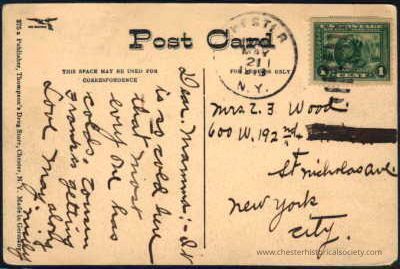 Post Card
THIS SPACE MAY BE USED FOR
CORRESPONDENCE
ONLY
875 a Publisher, Thompson's Drug Store, Chester, N. Y. Made in Germany
CHESTER
MAY
21
1913
N.Y.
1
Dear Mamma:- It
is so cold here
that most
every one has
colds.
is getting
along
nicely
Love May
Mrs Z. J. Wood
600 W. 192nd
St Nicholas Ave.
New York
City.
www.chesterhistoricalsociety.com